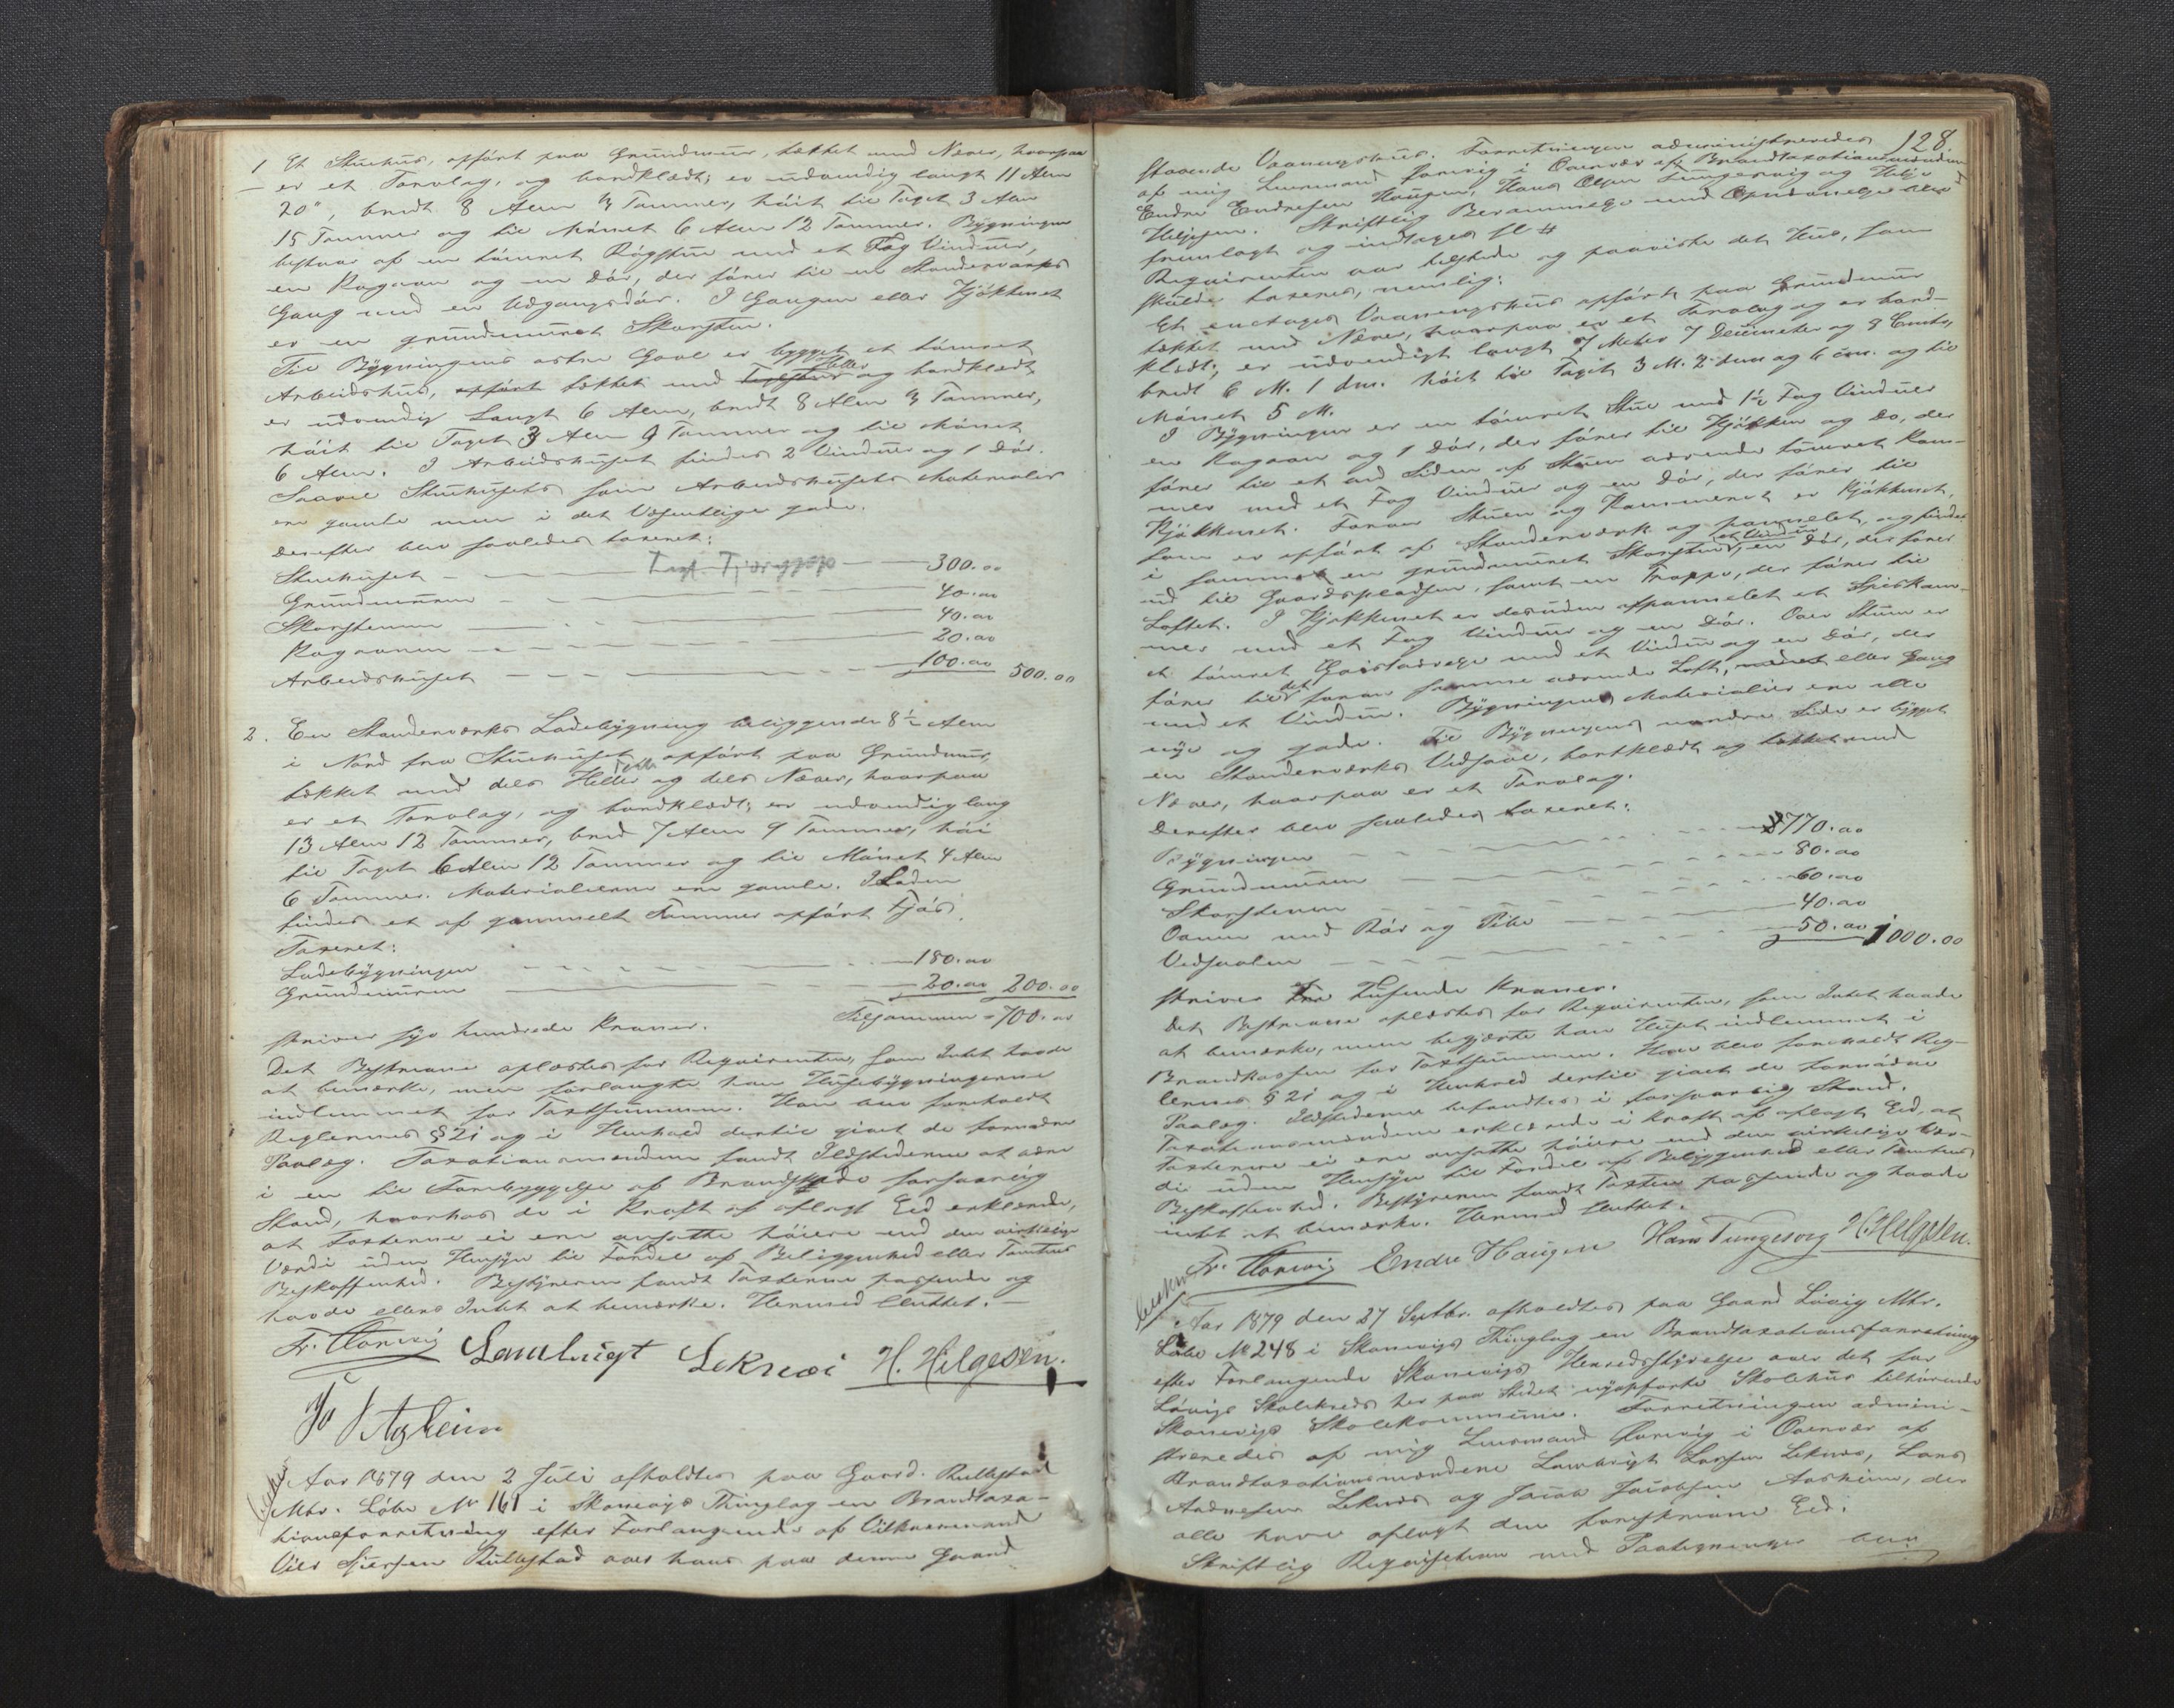 1 Et Stuehus, opført paa Grundmuur, tækket med Næver, hvorpaa
er et Torvlag, og bordklædt; er udvendig langt 11 Alen
20", bredt 8 Alen 3 Tommer, høit til Taget 3 Alen
15 Tommer og til Mønet 6 Alen 12 Tommer. Bygningen
bestaar af en tømret Røgstue med et Fag Vinduer,
en Kogeovn og en Dør, der fører til en Standerværks
Gang med en Udgangsdør. I Gangen eller Kjøkkenet
er en grundmuret Skorsten.
Til Bygningens østre Gavl er bygget et tømret
Arbeidshus, opført tækket med Heller og bordklædt
er udvendig Langt 6 Alen, bredt 8 Alen 3 Tommer,
høit til Taget 3 Alen 9 Tommer og til Mønet
6 Alen. I Arbeidshuset findes 2 Vinduer og 1 Dør.
Saavel Stuehusets som Arbeidshusets Materialer
ere gamle men i det Væsentlige gode.
Derefter blev saaledes taxeret:
Stuehuset - 300.00
Grundmuren 40.00
Skorstenen 40.00
Kogeovnen 20.00
Arbeidshuset 100.00 500.00
2. En Standerværks Ladebygning beliggende 8½ Alen
i Nord fra Stuehuset opført paa Grundmuur,
tækket med dels Heller og dels Næver, hvorpaa
er et Torvlag, og bordklædt; er udvendig lang
13 Alen 12 Tommer, bred 7 Alen 9 Tommer, høi
til Taget 6 Alen 12 Tommer og til Mønet 4 Alen
6 Tommer. Materialierne ere gamle. I Laden
findes et af gammelt Tømmer opført Fjøs.
Taxeret:
Ladebygningen 180.00
Grundmuren 20.00 200.00
Tilsammen = 700.00
skriver syv hundrede Kroner.
Det Beskrevne oplæstes for Reqvirenten, som Intet havde
at bemærke, men forlangte han Husebygningerne
indlemmet for Taxtsummen. Han blev foreholdt
Reglernes § 21 og i Henhold dertil givet de fornødne
Paalæg. Taxationsmændene fandt Ildstederne at være
i en til Forebyggelse af Brandskade forsvarlig
Stand, hvorhos de i Kraft af aflagt Eed erklærede,
at Taxterne ei ere ansatte høiere end den virkelige
Værdi uden Hensyn til Fordel af Beliggenhed eller Tomtens
Beskaffenhed. Bestyreren fandt Taxterne passende og
havde ellers Intet at bemærke. Hermed sluttet. —
Lambrigt Lekneci H. Helgesen.
Aar 1879 den 2 Juli afholdtes paa Gaard. Rullestad
Mtr. Løbe No 161 i Skonevigs Thinglag en Brandtaxa-
tionsforretning efter Forlangende af Vilkaarsmand
Rullestad over hans paa denne Gaard
128.
staaende Vaaningshus. Forretningen administreredes
af mig Lensmand i Overvær af Brandtaxationsmændene
Endre Endresen Haugen, Hans Olsen Tungesvig og Helje
Heljesen. Skriftlig Berammelse med Opnævnelse blev
fremlagt og indtages sl #
Reqvirenten var tilstede og paaviste det Hus, som
skulde taxeres, nemlig:
Et enetages Vaaningshus opført paa Grundmur
tækket med Næver, hvorpaa er et Torvlag og er bord-
klædt; er udvendigt langt 7 Meter 7 Decimeter og 9 Centr.,
bredt 6 M. 1 dm. høit til Taget 3 M. 2 dm og 6 cm. og til
Mønet 5 M.
I Bygningen er en tømret Stue med 1½ Fag Vinduer
en Kogeovn og 1 Dør, der fører til Kjøkken og Do, der
fører til et ved Siden af Stuen værende tømret Kam-
mer med et Fag Vinduer og en Dør, der fører til
Kjøkkenet. Foran Stuen og Kammeret er Kjøkkenet,
som er opført af Standerværk og pannelet, og findes
i samme en grundmuret Skorsten, et Vindu, en Dør, der fører
ud til Gaardspladsen, samt en Trappe, der fører til
Loftet. I Kjøkkenet er desuden afpannelet et Speiskam-
mer med et Fag Vinduer og en Dør. Over Stuen er
et tømret Værelse med et Vindu og en Dør, der
fører til det foran samme værende Loft, eller Gang
med et Vindu. Bygningens Materialier ere alle
nye og gode. Til Bygningens nordre Side er bygget
en Standerværks Vedsval, bordklædt og tækket med
Næver, hvorpaa er et Torvlag.
Derefter blev saaledes taxeret:
Bygningen 770.00
Grundmuren 80.00
Skorstenen 60.00
Ovnen med Rør og Pibe 40.00
Vedsvalen 50.00 1000.00
skriver Et Tusinde Kroner.
Det Beskrevne oplæstes for Reqvirenten, som Intet havde
at bemærke, men begjærte han Huset indlemmet i
Brandkassen for Taxtsummen. Han blev foreholdt Reg-
lernes § 21 og i Henhold dertil givet de fornødne
Paalæg. Ildstederne befandtes i forsvarlig Stand.
Taxationsmændene erklærede i Kraft af aflagt Eed, at
taxterne ei ere ansatte høiere end den virkelige Vær-
di uden Hensyn til Fordel af Beliggenhed eller Tomtens
Beskaffenhed. Bestyreren fandt Taxten passende og havde
intet at bemærke. Hermed sluttet.
Endre Haugen Hans Tungesvig H. Helgesen.
Aar 1879 den 27 Septbr. afholdtes paa Gaard Løvig Mtr.
Løbe No 248 i Skonevigs Thinglag en Brandtaxationsforretning
efter Forlangende Skonevigs Herredsstyrelse over det for
Løvigs Skolekreds her paa Stedet nyopførte Skolehus tilhørende
Skonevigs Skolekommune. Forretningen admini-
streredes af mig Lensmand i Overvær af
Brandtaxationsmændene Lambrigt Larsen Leknes, Lars
Andresen Leknes og Jacob Jacobsen Aasheim, der
alle have aflagt den foreskrevne Eed.
Skriftlig Reqvisition med Paategninger blev